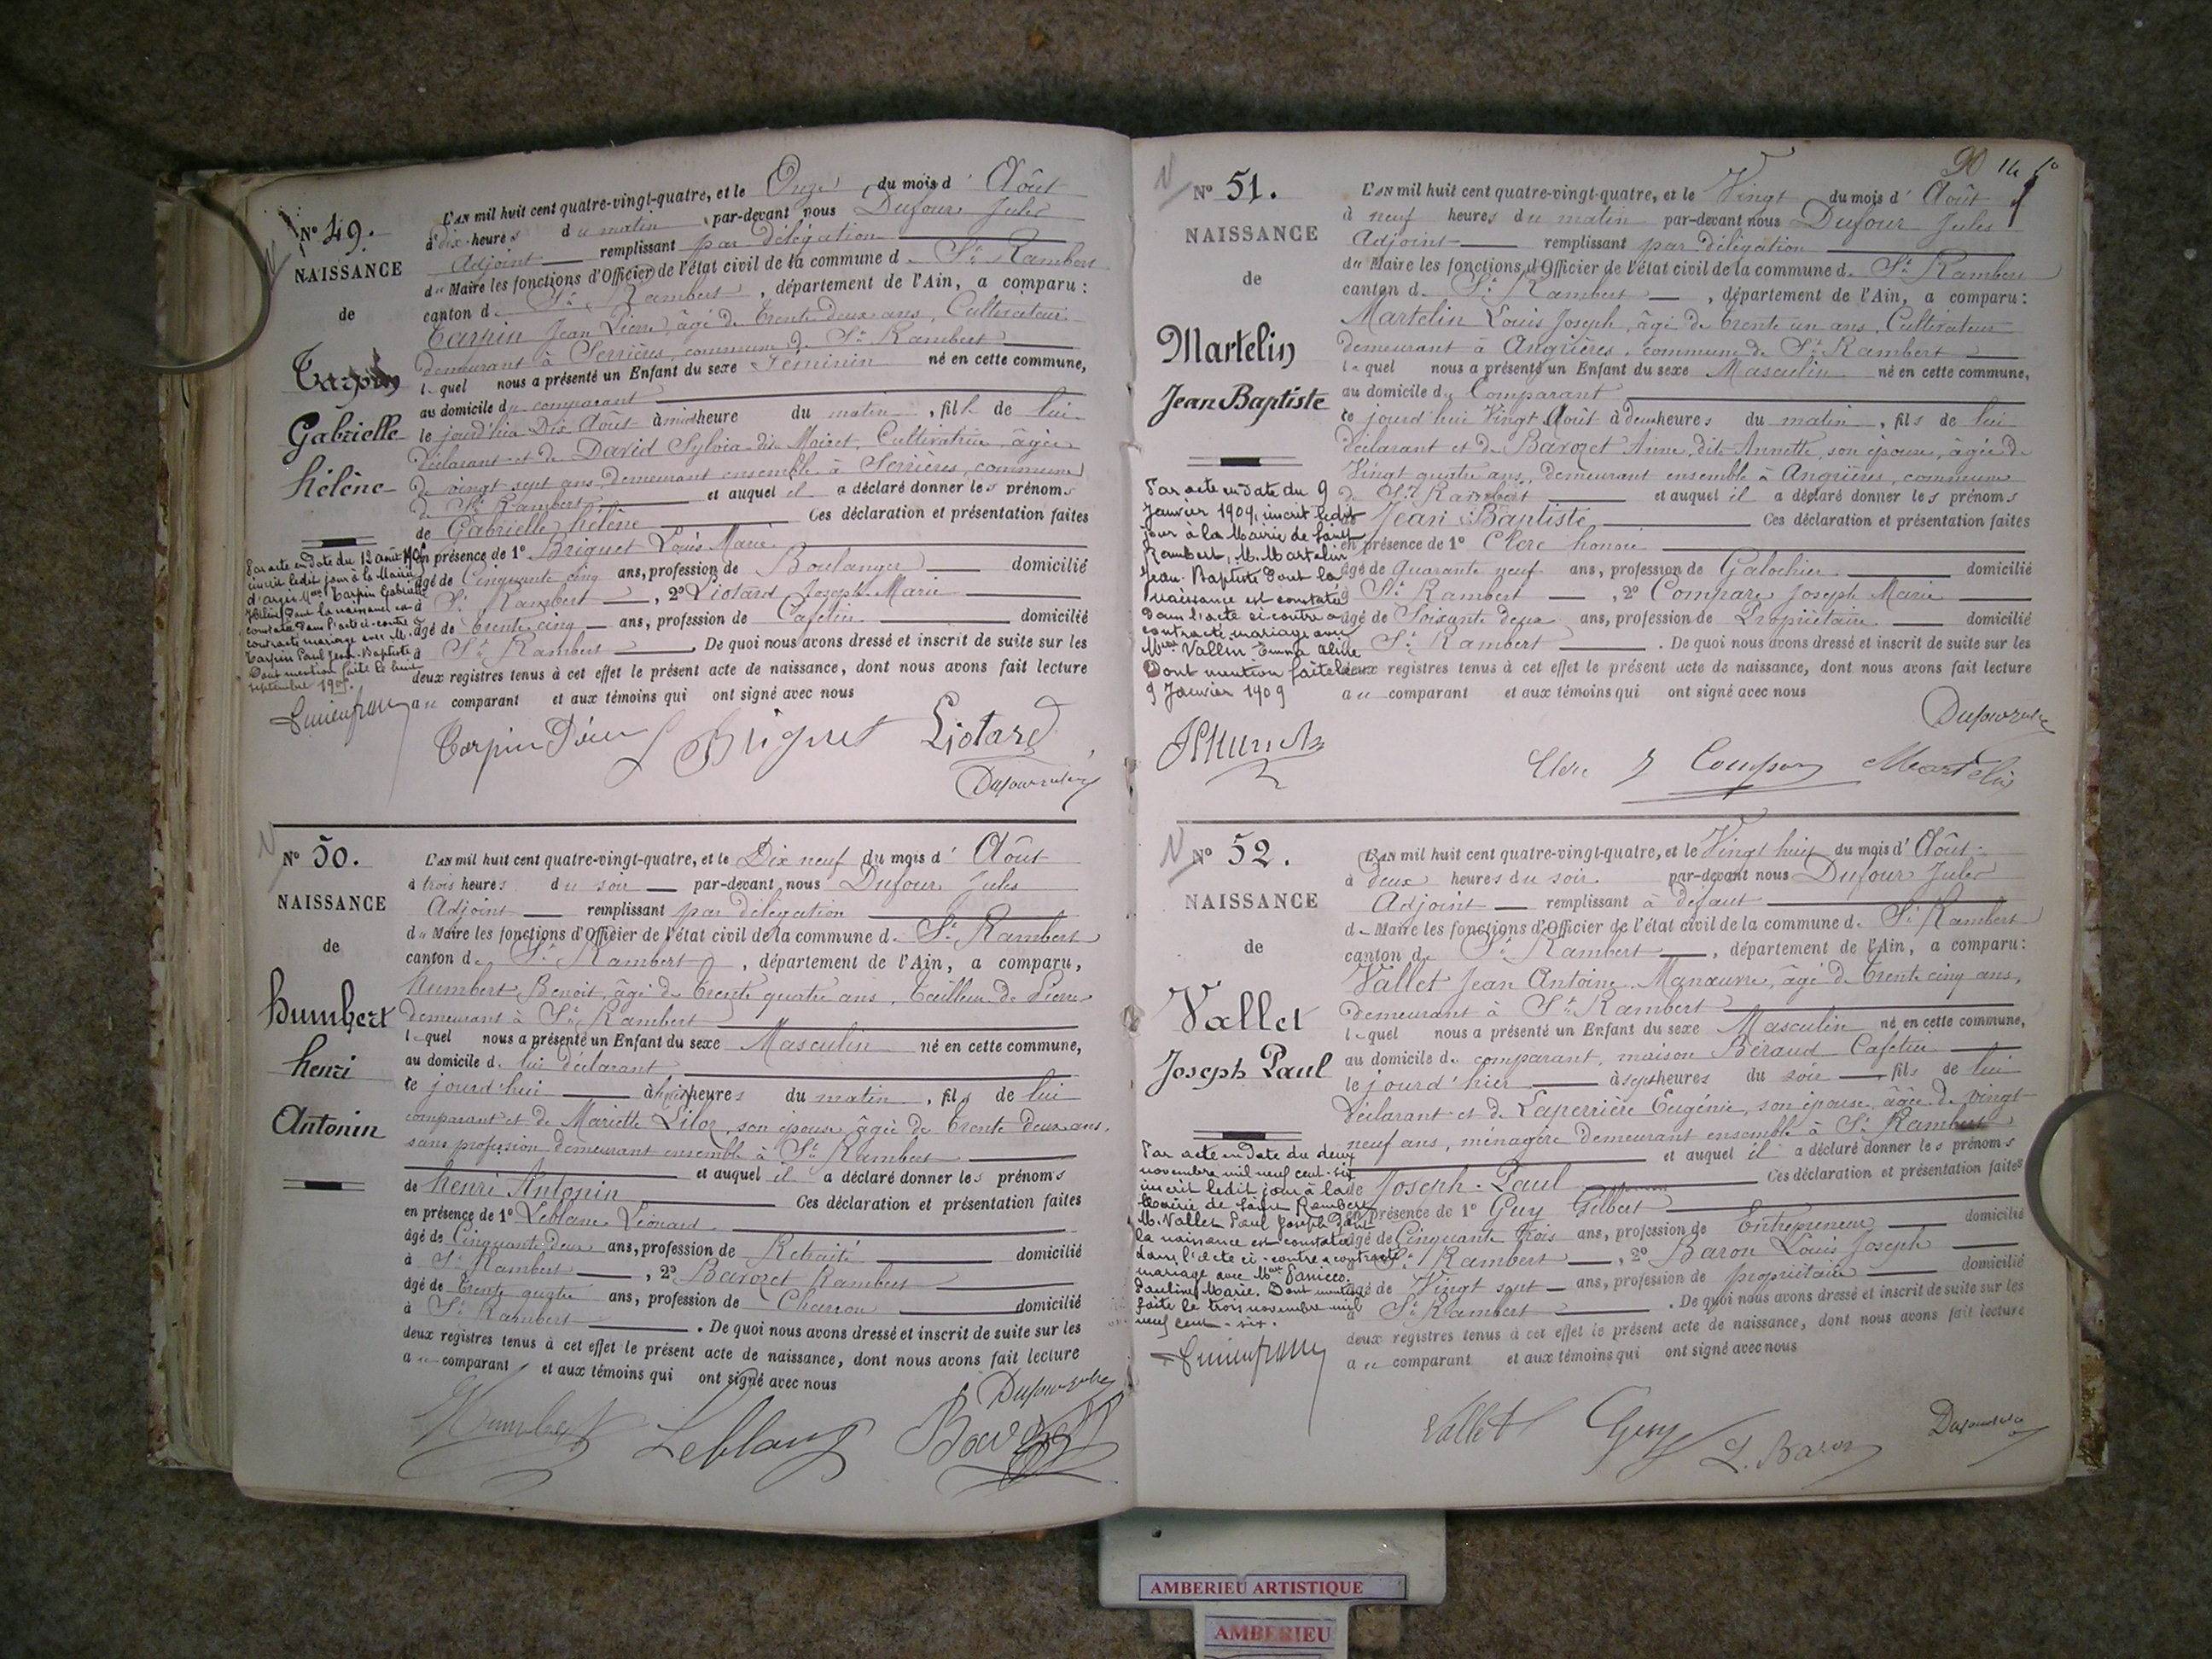 N° 49.
NAISSANCE
de
Tarpin
Gabrielle
hélène
L'AN mil huit cent quatre-vingt-quatre, et le Onze du mois d' Août
à dix heures du matin par-devant nous Dufour Jules
Adjoint remplissant par délégation
du Maire les fonctions d'Officier de l'état civil de la commune d. St Rambert
canton d. St Rambert, département de l'Ain, a comparu :
Tarpin Jean Pierre, âgé de trente deux ans, Cultivateur
demeurant à Serrières, commune de St Rambert
lequel nous a présenté un Enfant du sexe Féminin né en cette commune,
au domicile du comparant
le jourd'hier Dix Août à heure du matin, fille de lui
déclarant et de David Sylvie dite Moiret, Cultivatrice âgée
de vingt sept ans demeurant ensemble à Serrières, commune
de St Rambert et auquel il a déclaré donner les prénoms
de Gabrielle hélène Ces déclaration et présentation faites
en présence de 1° Briguet Louis Marie
âgé de Cinquante cinq ans, profession de Boulanger domicilié
à St Rambert, 2° Liotard Joseph Marie
âgé de trente cinq ans, profession de Cafetier domicilié
à St Rambert. De quoi nous avons dressé et inscrit de suite sur les
deux registres tenus à cet effet le présent acte de naissance, dont nous avons fait lecture
au comparant et aux témoins qui ont signé avec nous
Par acte en date du 12 août
inscrit ledit jour à la Mairie
d'Arges Melle Tarpin Gabrielle
Hélène dont la naissance est
constatée dans l'acte ci-contre a
contracté mariage avec M.
Tarpin Paul Jean-Baptiste
Dont mention faite le
septembre
Tarpin Pierre Briguet Liotard
Dufour Jules
N° 50.
NAISSANCE
de
humbert
henri
Antonin
L'AN mil huit cent quatre-vingt-quatre, et le Dix neuf du mois d' Août
à trois heures du soir par-devant nous Dufour Jules
Adjoint remplissant par délégation
du Maire les fonctions d'Officier de l'état civil de la commune d. St Rambert
canton d. St Rambert, département de l'Ain, a comparu,
humbert Benoit, âgé de trente quatre ans, Tailleur de Pierre
demeurant à St Rambert
lequel nous a présenté un Enfant du sexe Masculin né en cette commune,
au domicile d. lui déclarant
le jourd'hui à heures du matin, fils de lui
comparant et de Mariette son épouse âgée de trente deux ans,
sans profession demeurant ensemble à St Rambert
et auquel il a déclaré donner les prénoms
de henri Antonin Ces déclaration et présentation faites
en présence de 1° Leblanc Léonard
âgé de Cinquante deux ans, profession de Retraité domicilié
à St Rambert, 2° Barozet Rambert
âgé de trente quatre ans, profession de Charron domicilié
à St Rambert. De quoi nous avons dressé et inscrit de suite sur les
deux registres tenus à cet effet le présent acte de naissance, dont nous avons fait lecture
au comparant et aux témoins qui ont signé avec nous
Dufour Jules
Humbert Leblanc Barozet
90
N° 51.
NAISSANCE
de
Martelin
Jean Baptiste
L'AN mil huit cent quatre-vingt-quatre, et le Vingt du mois d' Août
à neuf heures du matin par-devant nous Dufour Jules
Adjoint remplissant par délégation
du Maire les fonctions d'Officier de l'état civil de la commune d. St Rambert
canton d. St Rambert, département de l'Ain, a comparu :
Martelin Louis Joseph, âgé de trente un ans, Cultivateur
demeurant à Angrières, commune de St Rambert
lequel nous a présenté un Enfant du sexe Masculin né en cette commune,
au domicile du Comparant
le jourd'hui Vingt Août à deux heures du matin, fils de lui
déclarant et de Barozet Anne, dite Annette, son épouse, âgée de
Vingt quatre ans, demeurant ensemble à Angrières, commune
de St Rambert et auquel il a déclaré donner les prénoms
de Jean Baptiste Ces déclaration et présentation faites
en présence de 1° Clerc honoré
âgé de Quarante neuf ans, profession de Galochier domicilié
à St Rambert, 2° Compare Joseph Marie
âgé de Soixante deux ans, profession de Propriétaire domicilié
à St Rambert. De quoi nous avons dressé et inscrit de suite sur les
deux registres tenus à cet effet le présent acte de naissance, dont nous avons fait lecture
au comparant et aux témoins qui ont signé avec nous
Par acte en date du 9
Janvier 1909, inscrit ledit
jour à la Mairie de Saint
Rambert, M. Martelin
Jean-Baptiste dont la
naissance est constatée
dans l'acte ci-contre a
contracté mariage avec
Melle Vallin Emma Aline
Dont mention faite le
9 Janvier 1909
Dufour Jules
Clerc Compare Martelin
N° 52.
NAISSANCE
de
Vallet
Joseph Paul
L'AN mil huit cent quatre-vingt-quatre, et le Vingt huit du mois d' Août
à deux heures du soir par-devant nous Dufour Jules
Adjoint remplissant à défaut
d. Maire les fonctions d'Officier de l'état civil de la commune d. St Rambert
canton d. St Rambert, département de l'Ain, a comparu :
Vallet Jean Antoine, Manœuvre, âgé de trente cinq ans,
demeurant à St Rambert
lequel nous a présenté un Enfant du sexe Masculin né en cette commune,
au domicile du comparant, maison Béraud Cafetier
le jourd'hier à sept heures du soir, fils de lui
déclarant et de Laperrière Eugénie, son épouse, âgée de vingt
neuf ans, ménagère demeurant ensemble à St Rambert
et auquel il a déclaré donner les prénoms
de Joseph Paul Ces déclaration et présentation faites
en présence de 1° Guy Gilbert
âgé de Cinquante trois ans, profession de Entrepreneur domicilié
à St Rambert, 2° Baron Louis Joseph
âgé de Vingt sept ans, profession de propriétaire domicilié
à St Rambert. De quoi nous avons dressé et inscrit de suite sur les
deux registres tenus à cet effet le présent acte de naissance, dont nous avons fait lecture
au comparant et aux témoins qui ont signé avec nous
Par acte en date du deux
novembre mil neuf cent-six
inscrit ledit jour à la
Mairie de Saint Rambert
M. Vallet Paul Joseph dont
la naissance est constatée
dans l'acte ci-contre a contracté
mariage avec Melle
Pauline Marie. Dont mention
faite le trois novembre mil
neuf cent-six.
Vallet Guy L. Baron Dufour Jules
AMBERIEU ARTISTIQUE
AMBERIEU